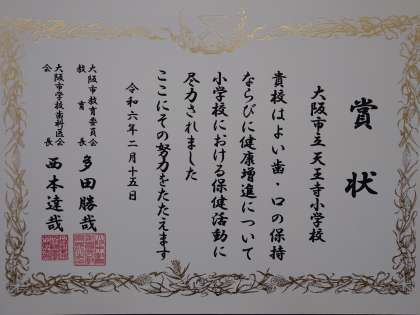 賞状
大阪市立天王寺小学校
貴校はよい歯・口の保持
ならびに健康増進について
小学校における保健活動に
尽力されました
ここにその努力をたたえます
令和六年二月十五日
大阪市教育委員会
教育長 多田勝哉
大阪市学校歯科医会
会長 西本達哉